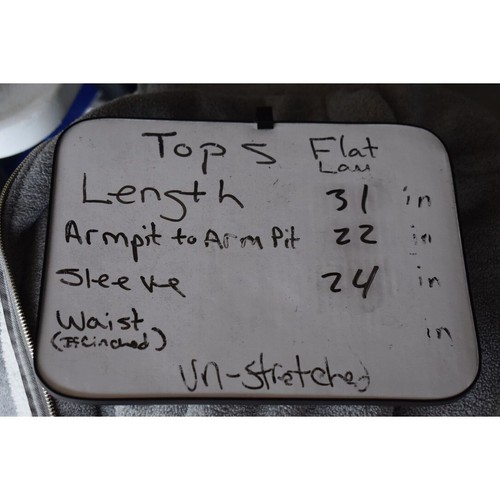 Tops Flat Lay
Length 31 in
Armpit to Arm Pit 22 in
Sleeve 24 in
Waist in
(If Cinched)
Un-Stretched